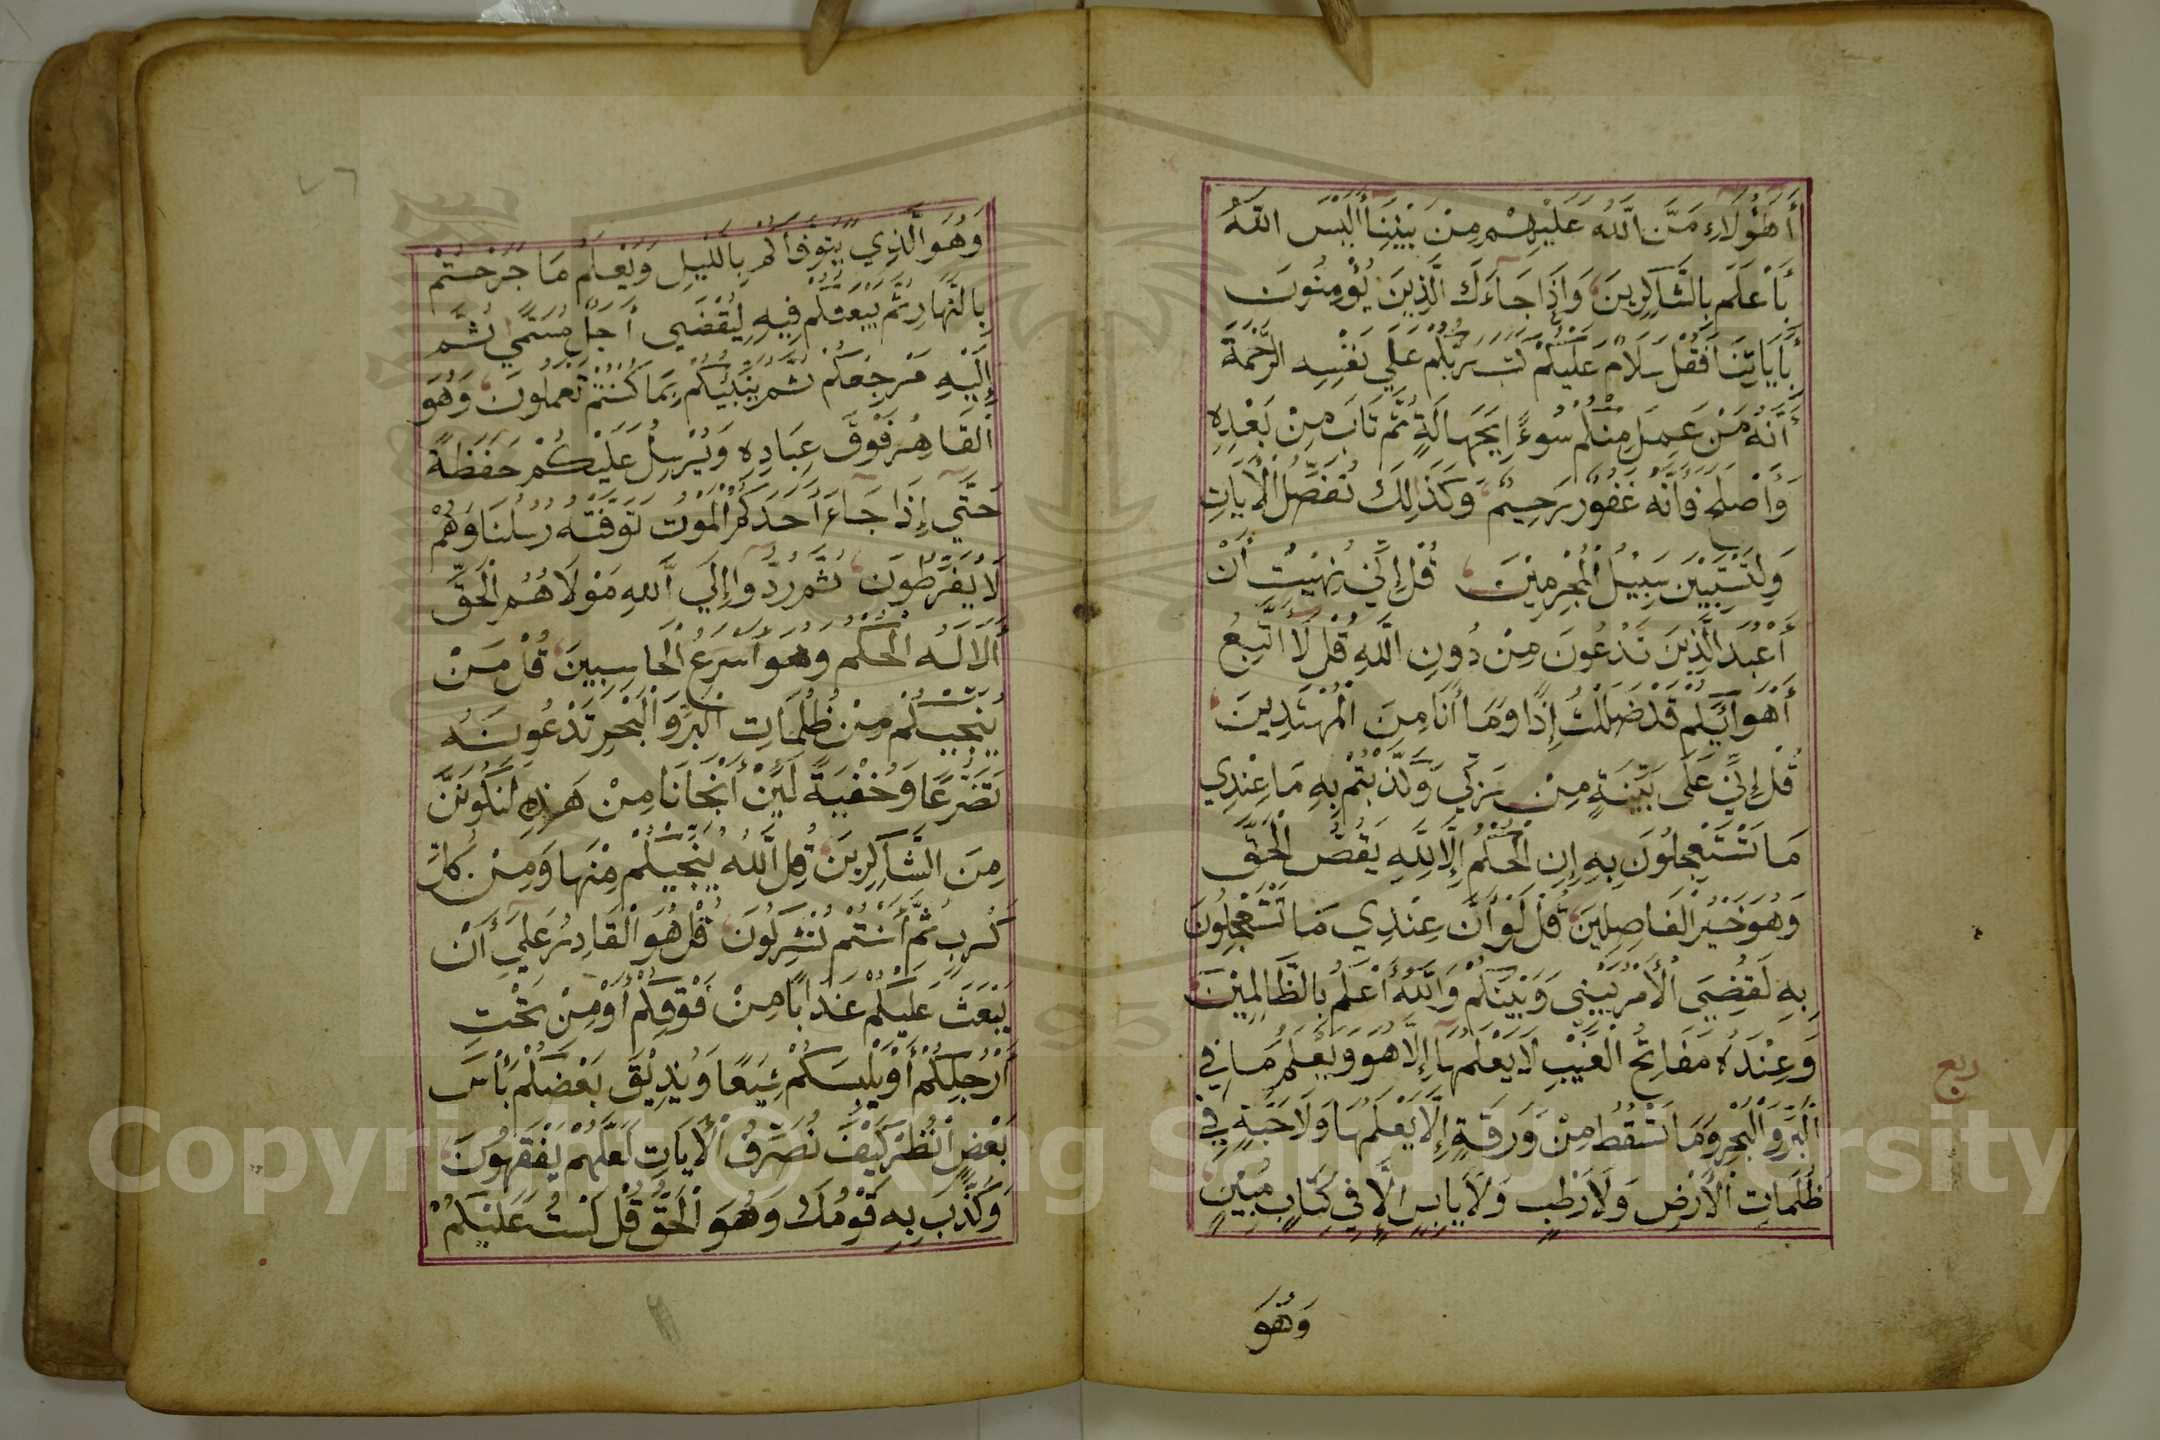 أَهَؤُلَاءِ مَنَّ اللَّهُ عَلَيْهِمْ مِنْ بَيْنِنَا أَلَيْسَ اللَّهُ
بِأَعْلَمَ بِالشَّاكِرِينَ وَإِذَا جَآءَكَ الَّذِينَ يُؤْمِنُونَ
بِأَيَاتِنَا فَقُلْ سَلَامٌ عَلَيْكُمْ كَتَبَ رَبُّكُمْ عَلَي نَفْسِهِ الرَّحْمَةَ
أَنَّهُ مَنْ عَمِلَ مِنْكُمْ سُوءًا بِجَهَالَةٍ ثُمَّ تَابَ مِنْ بَعْدِهِ
وَأَصْلَحَ فَأَنَّهُ غَفُورٌ رَحِيمٌ وَكَذَلِكَ نُفَصِّلُ الْأَيَاتِ
وَلِتَسْتَبِيْنَ سَبِيْلُ الْمُجْرِمِيْنَ قُلْ إِنِّي نُهِيْتُ أَنْ
أَعْبُدَ الَّذِينَ تَدْعُونَ مِنْ دُونِ اللَّهِ قُلْ لَا أَتَّبِعُ
أَهْوَآئَكُمْ قَدْ ضَلَلْتُ إِذًا وَمَا أَنَا مِنَ الْمُهْتَدِينَ
قُلْ إِنِّي عَلَى بَيِّنَةٍ مِنْ رَبِّي وَكَذَّبْتُمْ بِهِ مَا عِنْدِي
مَا تَسْتَعْجِلُونَ بِهِ إِنِ الْحُكْمُ إِلَّا لِلَّهِ يَقُصُّ الْحَقَّ
وَهُوَ خَيْرُ الْفَاصِلِينَ قُلْ لَوْ أَنَّ عِنْدِي مَا تَسْتَعْجِلُونَ
بِهِ لَقُضِيَ الْأَمْرُ بَيْنِي وَبَيْنَكُمْ وَاللَّهُ أَعْلَمُ بِالظَّالِمِيْنَ
وَعِنْدَهُ مَفَاتِحُ الْغَيْبِ لَا يَعْلَمُهَا إِلَّا هُوَ وَيَعْلَمُ مَا فِي
الْبَرِّ وَالْبَحْرِ وَمَا تَسْقُطُ مِنْ وَرَقَةٍ إِلَّا يَعْلَمُهَا وَلَا حَبَّةٍ فِي
ظُلُمَاتِ الْأَرْضِ وَلَا رَطْبٍ وَلَا يَابِسٍ إِلَّا فِي كِتَابٍ مُبِيْنٍ
وَهُوَ
ربع
وَهُوَ الَّذِي يَتَوَفَّاكُمْ بِاللَّيْلِ وَيَعْلَمُ مَا جَرَحْتُمْ
بِالنَّهَارِ ثُمَّ يَبْعَثُكُمْ فِيهِ لِيُقْضَي أَجَلٌ مُسَمًّي ثُمَّ
إِلَيْهِ مَرْجِعُكُمْ ثُمَّ يُنَبِّئُكُمْ بِمَا كُنْتُمْ تَعْمَلُونَ وَهُوَ
الْقَاهِرُ فَوْقَ عِبَادِهِ وَيُرْسِلُ عَلَيْكُمْ حَفَظَةً
حَتَّي إِذَا جَآءَ أَحَدَكُمُ الْمَوْتُ تَوَفَّتْهُ رُسُلُنَا وَهُمْ
لَا يُفَرِّطُونَ ثُمَّ رُدُّوا إِلَي اللَّهِ مَوْلَاهُمُ الْحَقِّ
أَلَا لَهُ الْحُكْمُ وَهُوَ أَسْرَعُ الْحَاسِبِينَ قُلْ مَنْ
يُنَجِّيْكُمْ مِنْ ظُلُمَاتِ الْبَرِّ وَالْبَحْرِ تَدْعُونَهُ
تَضَرُّعًا وَخُفْيَةً لَئِنْ أَنْجَانَا مِنْ هَذِهِ لَنَكُونَنَّ
مِنَ الشَّاكِرِينَ قُلِ اللَّهُ يُنَجِّيْكُمْ مِنْهَا وَمِنْ كُلِّ
كَرْبٍ ثُمَّ أَنْتُمْ تُشْرِكُونَ قُلْ هُوَ الْقَادِرُ عَلَي أَنْ
يَبْعَثَ عَلَيْكُمْ عَذَابًا مِنْ فَوْقِكُمْ أَوْ مِنْ تَحْتِ
أَرْجُلِكُمْ أَوْ يَلْبِسَكُمْ شِيَعًا وَيُذِيْقَ بَعْضَكُمْ بَأْسَ
بَعْضٍ انْظُرْ كَيْفَ نُصَرِّفُ الْأَيَاتِ لَعَلَّهُمْ يَفْقَهُونَ
وَكَذَّبَ بِهِ قَوْمُكَ وَهُوَ الْحَقُّ قُلْ لَسْتُ عَلَيْكُمْ
Copyright © King Saud University
1957